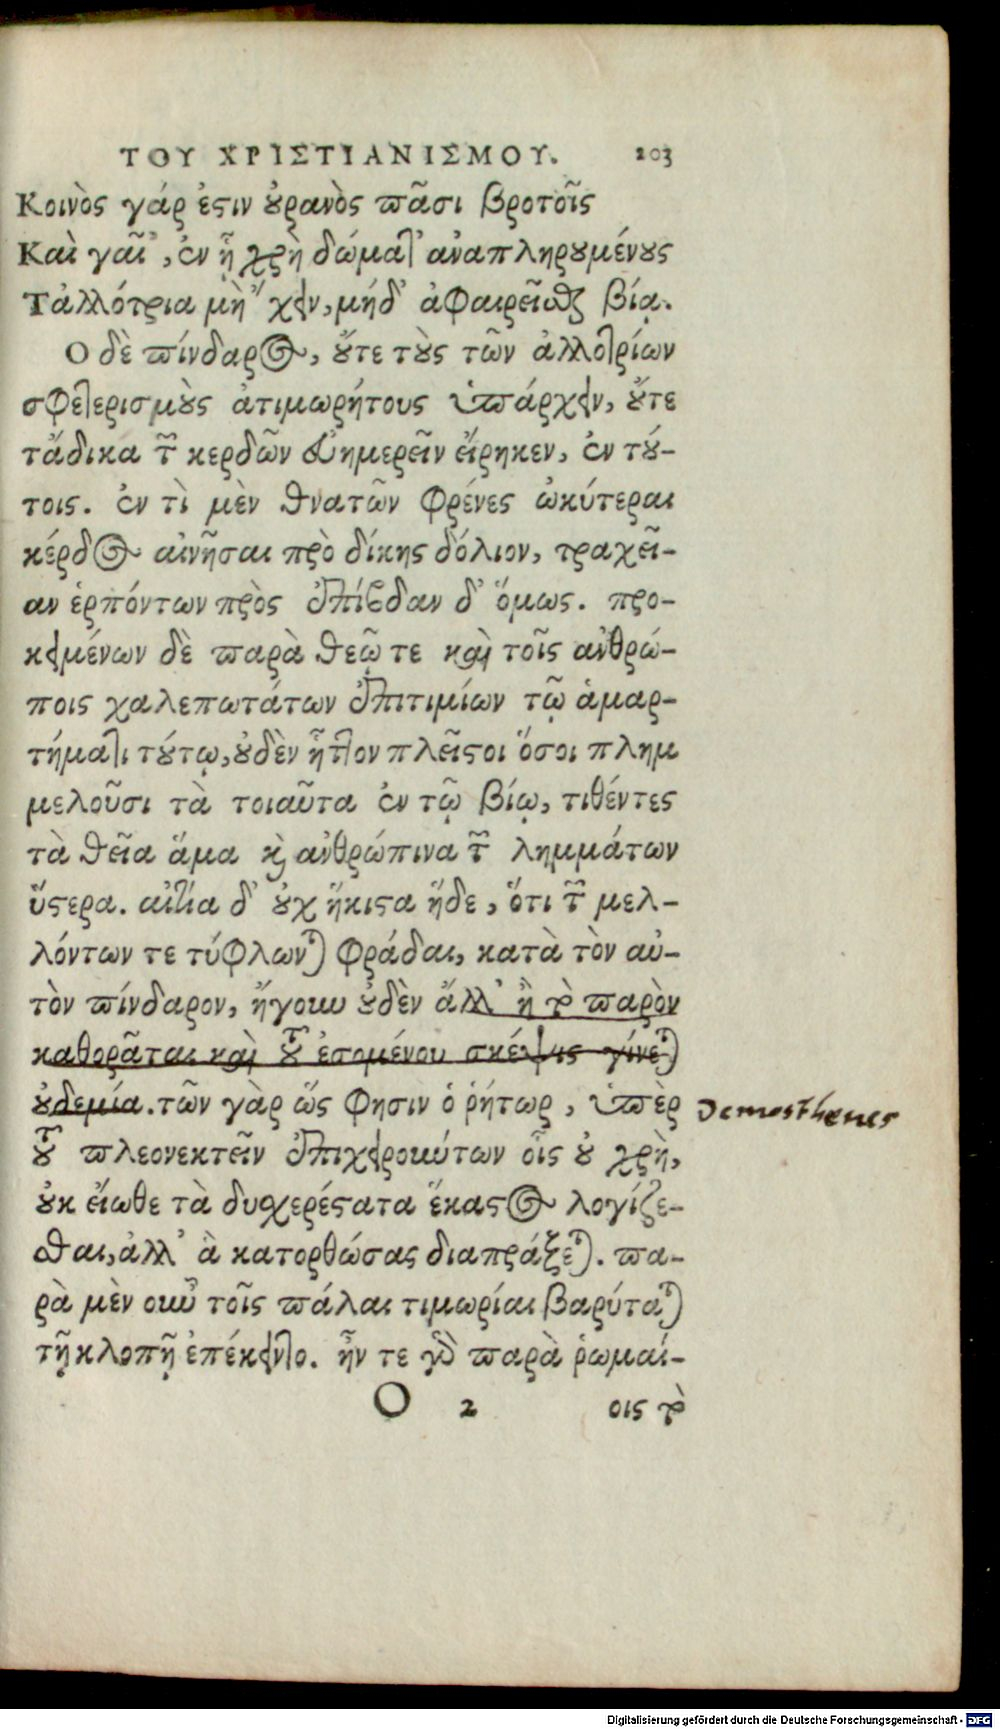 ΤΟΥ ΧΡΙΣΤΙΑΝΙΣΜΟΥ. 203
Κοινὸς γάρ ἐϛιν ȣ̓ρανὸς πᾶσι βροτοῖς
Καὶ γαῖ', ἐν ᾗ χρὴ δώματ' ἀναπληρȣμένȣς
Τἀλλότρια μὴ 'χειν, μήδ' ἀφαιρεῖσθαι βίᾳ.
Ο δὲ πίνδαρος, ȣ̓́τε τȣ̀ς τῶν ἀλλοτρίων
σφετερισμȣ̀ς ἀτιμωρήτους ὑπάρχειν, ȣ̓́τε
τἄδικα τῶν κερδῶν εὐημερεῖν εἴρηκεν, ἐν τȣ́-
τοις. ἐν τὶ μὲν θνατῶν φρένες ὠκύτεραι
κέρδος αἰνῆσαι πρὸ δίκης δόλιον, τραχεῖ-
αν ἑρπόντων πρὸς ἐπίβδαν δ' ὅμως. προ-
κειμένων δὲ παρὰ θεῷ τε καὶ τοῖς ἀνθρώ-
ποις χαλεπωτάτων ἐπιτιμίων τῷ ἁμαρ-
τήματι τȣ́τῳ, ȣ̓δὲν ἧττον πλεῖϛοι ὅσοι πλημ
μελοῦσι τὰ τοιαῦτα ἐν τῷ βίῳ, τιθέντες
τὰ θεῖα ἅμα κὶ ἀνθρώπινα τῶν λημμάτων
ὕϛερα. αἰτία δ' ȣ̓χ ἥκιϛα ἥδε, ὅτι τῶν μελ-
λόντων τε τύφλωνται φράδαι, κατὰ τὸν αὐ-
τὸν πίνδαρον, ἤγουν ȣ̓δὲν ἄλλ' ἢ τὸ παρὸν
καθορᾶται καὶ τοῦ ἐσομένου σκέψις γίνεται
ȣ̓δεμία. τῶν γὰρ ὥς φησιν ὁ ῥήτωρ, ὑπὲρ
τοῦ πλεονεκτεῖν ἐπιχειρούντων οἷς ȣ̓ χρὴ,
οὐκ εἴωθε τὰ δυχερέϛατα ἕκαϛος λογίζε-
σθαι, ἀλλ' ἃ κατορθώσας διαπράξεται. πα-
ρὰ μὲν οὖν τοῖς πάλαι τιμωρίαι βαρύταται
τῇ κλοπῇ ἐπέκειντο. ἦν τε γὰρ παρὰ ῥωμαί-
O 2 οις τὸ
Demosthenes
Digitalisierung gefördert durch die Deutsche Forschungsgemeinschaft - DFG